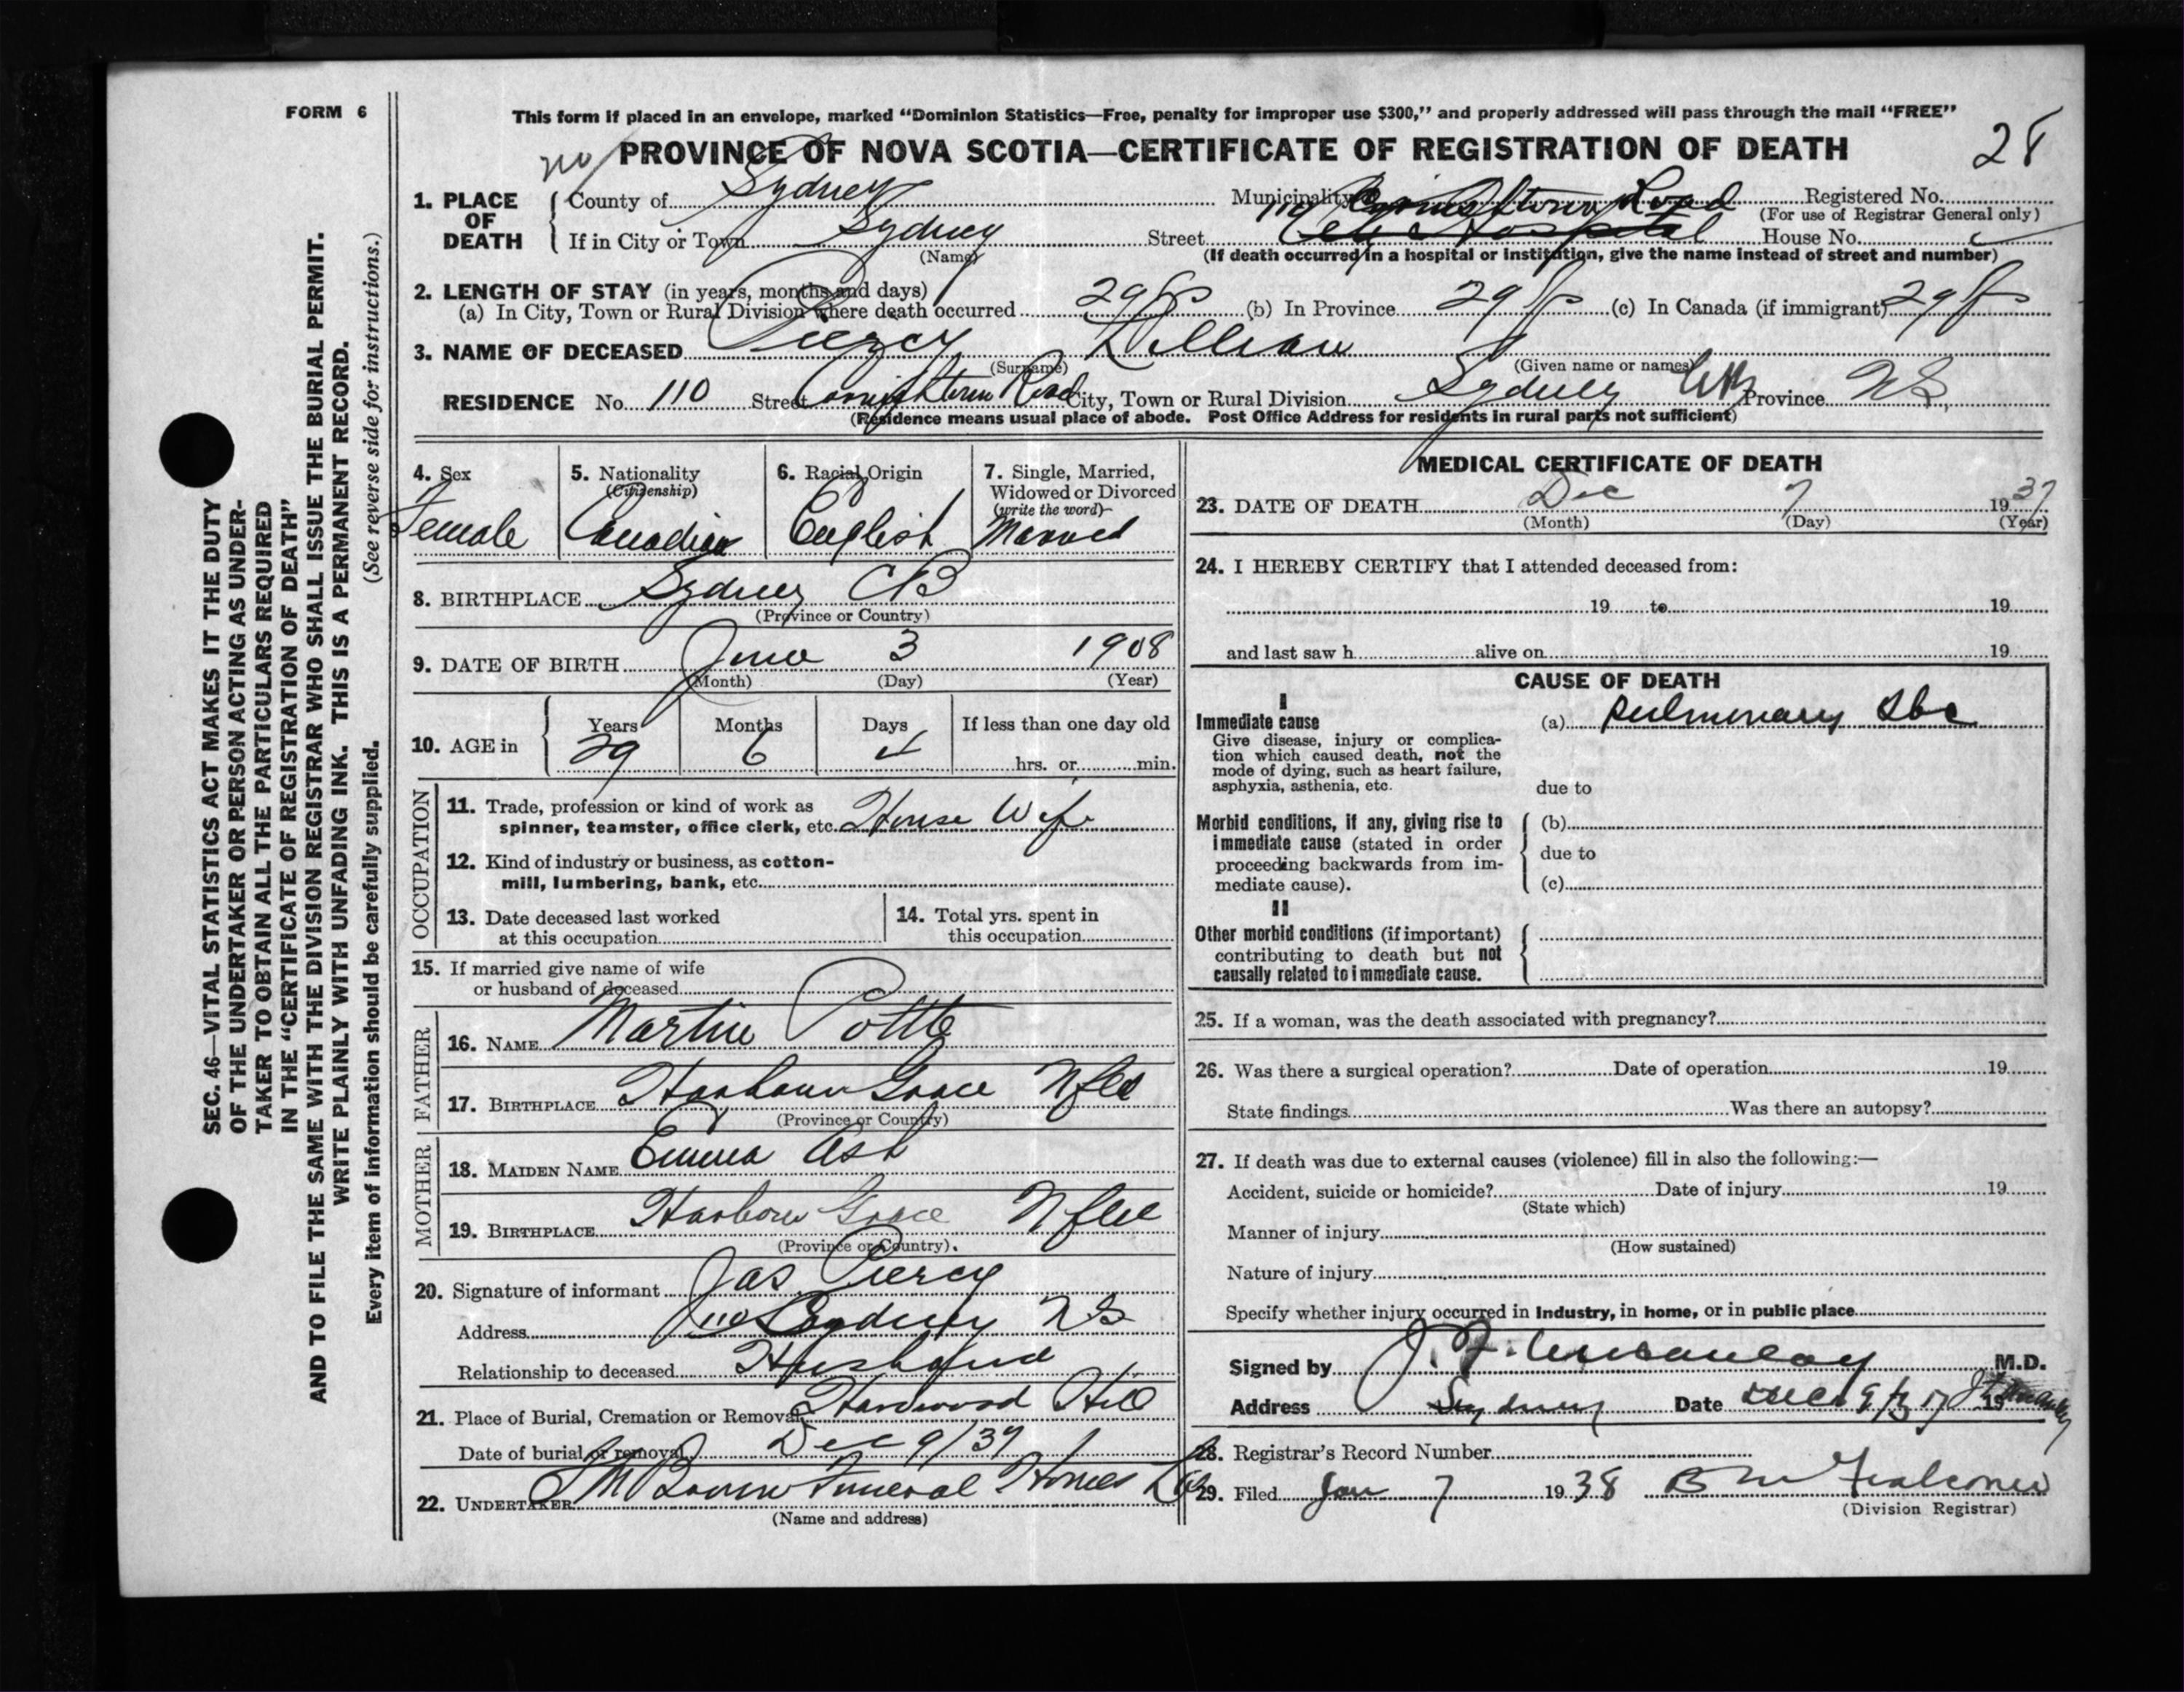 FORM 6
This form if placed in an envelope, marked “Dominion Statistics—Free, penalty for improper use $300,” and properly addressed will pass through the mail “FREE”
PROVINCE OF NOVA SCOTIA—CERTIFICATE OF REGISTRATION OF DEATH
28
SEC. 46—VITAL STATISTICS ACT MAKES IT THE DUTY
OF THE UNDERTAKER OR PERSON ACTING AS UNDER-
TAKER TO OBTAIN ALL THE PARTICULARS REQUIRED
IN THE “CERTIFICATE OF REGISTRATION OF DEATH”
AND TO FILE THE SAME WITH THE DIVISION REGISTRAR WHO SHALL ISSUE THE BURIAL PERMIT.
WRITE PLAINLY WITH UNFADING INK. THIS IS A PERMANENT RECORD.
Every item of information should be carefully supplied. (See reverse side for instructions.)
1. PLACE OF DEATH
County of Sydney Municipality Road Registered No.
(For use of Registrar General only)
If in City or Town Sydney Street City Hospital House No.
(Name)
(If death occurred in a hospital or institution, give the name instead of street and number)
2. LENGTH OF STAY (in years, months and days)
(a) In City, Town or Rural Division where death occurred 29 (b) In Province 29 (c) In Canada (if immigrant) 29
3. NAME OF DECEASED Piercy Lillian
(Surname) (Given name or names)
RESIDENCE No. 110 Street Road City, Town or Rural Division Sydney Province NS
(Residence means usual place of abode. Post Office Address for residents in rural parts not sufficient)
4. Sex
Female
5. Nationality
(Citizenship)
Canadian
6. Racial Origin
English
7. Single, Married,
Widowed or Divorced
(write the word)
Married
8. BIRTHPLACE Sydney CB
(Province or Country)
9. DATE OF BIRTH June 3 1908
(Month) (Day) (Year)
10. AGE in Years Months Days If less than one day old
29 6 4 hrs. or min.
OCCUPATION
11. Trade, profession or kind of work as
spinner, teamster, office clerk, etc. House Wife
12. Kind of industry or business, as cotton-
mill, lumbering, bank, etc.
13. Date deceased last worked
at this occupation
14. Total yrs. spent in
this occupation
15. If married give name of wife
or husband of deceased
FATHER
16. NAME Martin Pottle
17. BIRTHPLACE Harbour Grace Nfld
(Province or Country)
MOTHER
18. MAIDEN NAME Emma Ash
19. BIRTHPLACE Harbour Grace Nfld
(Province or Country).
20. Signature of informant Jas Piercy
Address Sydney NS
Relationship to deceased Husband
21. Place of Burial, Cremation or Removal Hardwood Hill
Date of burial or removal Dec 9/37
22. UNDERTAKER Funeral Homes
(Name and address)
MEDICAL CERTIFICATE OF DEATH
23. DATE OF DEATH Dec 7 1937
(Month) (Day) (Year)
24. I HEREBY CERTIFY that I attended deceased from:
19 to 19
and last saw h alive on 19
CAUSE OF DEATH
I
Immediate cause (a) Pulmonary tbc
Give disease, injury or complica-
tion which caused death, not the
mode of dying, such as heart failure,
asphyxia, asthenia, etc. due to
Morbid conditions, if any, giving rise to (b)
immediate cause (stated in order due to
proceeding backwards from im-
mediate cause). (c)
II
Other morbid conditions (if important)
contributing to death but not
causally related to immediate cause.
25. If a woman, was the death associated with pregnancy?
26. Was there a surgical operation? Date of operation 19
State findings Was there an autopsy?
27. If death was due to external causes (violence) fill in also the following:—
Accident, suicide or homicide? Date of injury 19
(State which)
Manner of injury
(How sustained)
Nature of injury
Specify whether injury occurred in Industry, in home, or in public place
Signed by M.D.
Address Sydney Date Dec 9/37 19
28. Registrar's Record Number
29. Filed Jan 7 1938
(Division Registrar)